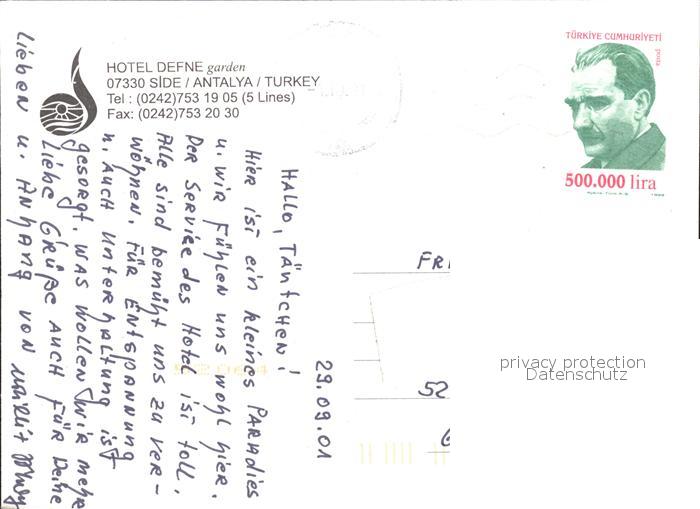 HOTEL DEFNE garden
07330 SİDE / ANTALYA / TURKEY
Tel : (0242)753 19 05 (5 Lines)
Fax: (0242)753 20 30
TÜRKİYE CUMHURİYETİ
posta
500.000 lira
29.09.01
Hallo, Täntchen!
Hier ist ein kleines Paradies
u. wir fühlen uns wohl hier.
Der Service des Hotel ist toll.
Alle sind bemüht uns zu ver-
wöhnen. Für Entspannung
u. auch Unterhaltung ist
gesorgt. Was wollen wir mehr
Liebe Grüße auch für Deine
Lieben u. Anhang von
FRI
52
privacy protection
Datenschutz